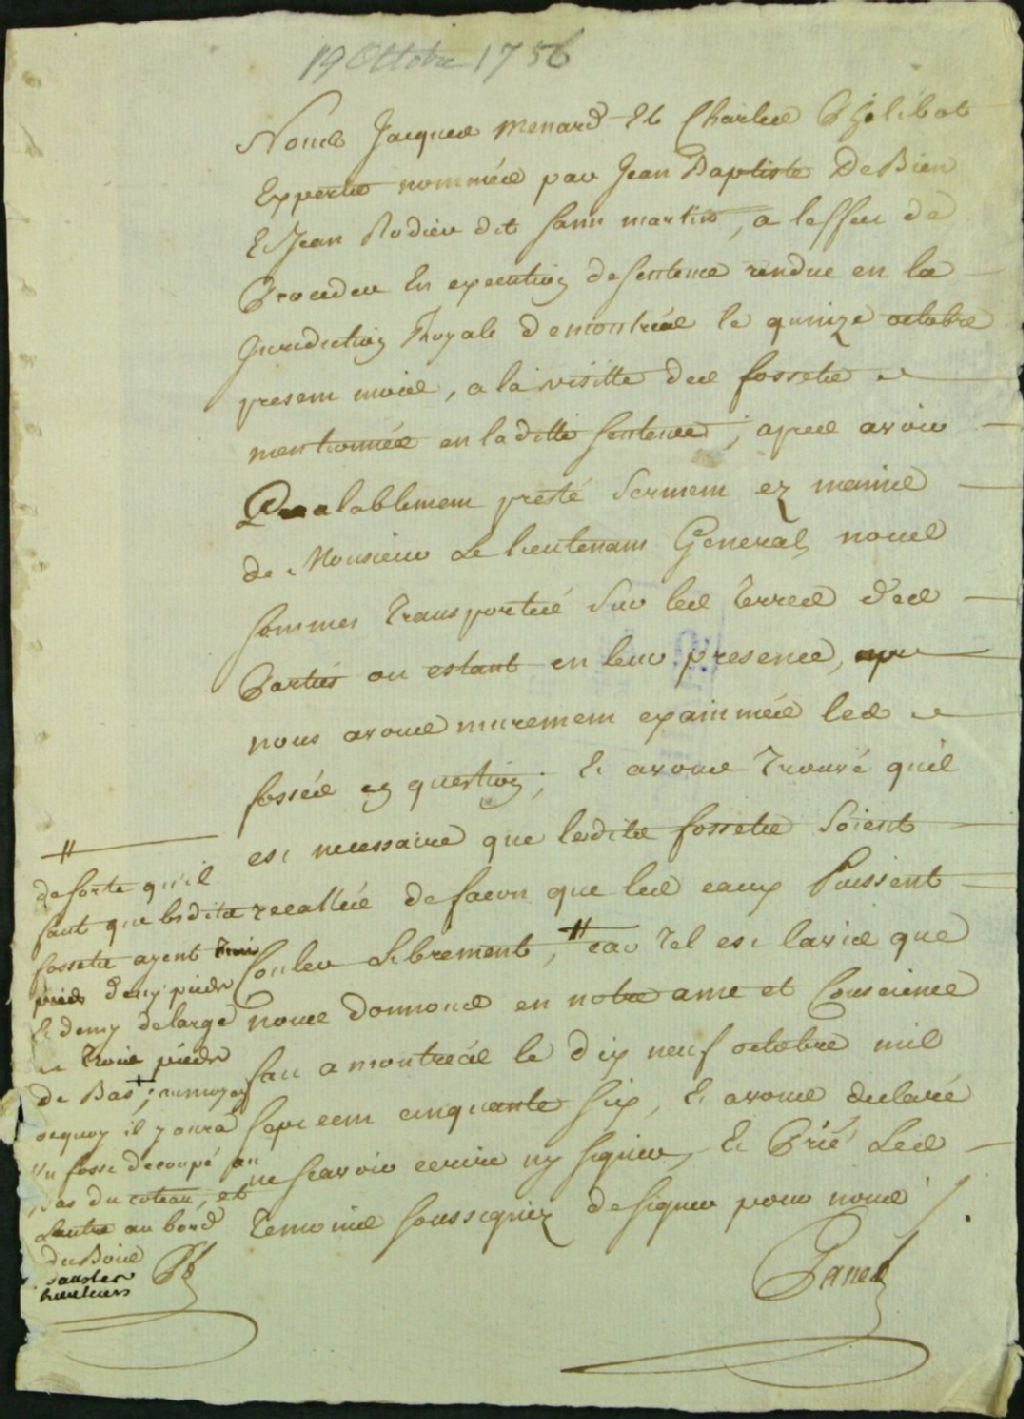 19 Octobre 1756
Nous Jacques Menard Et Charles
Experts nommées par Jean Baptiste DeBien
Et Jean Rodier dit Saint martin, a leffeu de
Proceder En execution de sentence rendue en la
Jurediction Royale demontréal le quinze octobre
presen mois, a la visitte des fossetes
mentionnées en laditte sentence; apres avoir
Prealablemem presté Sermem ez mains
de Monsieur Le lieutenam General, nous
sommes Transportés Sur les terres des
Parties ou estant en leur presence,
nous avons muremem examinée les
fossés en question; Et avons trouvé quil
est necessaire que lesdits fossetes Soient
recallés de facon que les eaux Puissent
Couler Librement, # car tel est lavis que
nous donnons en notre ame et Conscience
fait a montreal le dix neuf octobre mil
sept cent cinquante six, Et avons declaré
ne scavoir ecrire ny signer, Et Prié Les
temoins soussignez de signer pour nous
Panet
#
de sorte qu'il
faut que lesdits
fossetes ayent
deux pieds
Et demy de large
trois pieds
de Bas +; au moyen
dequoy il y aura
Un fossé decoupé au
bas du coteau, et
Lautre au bord
du Bois